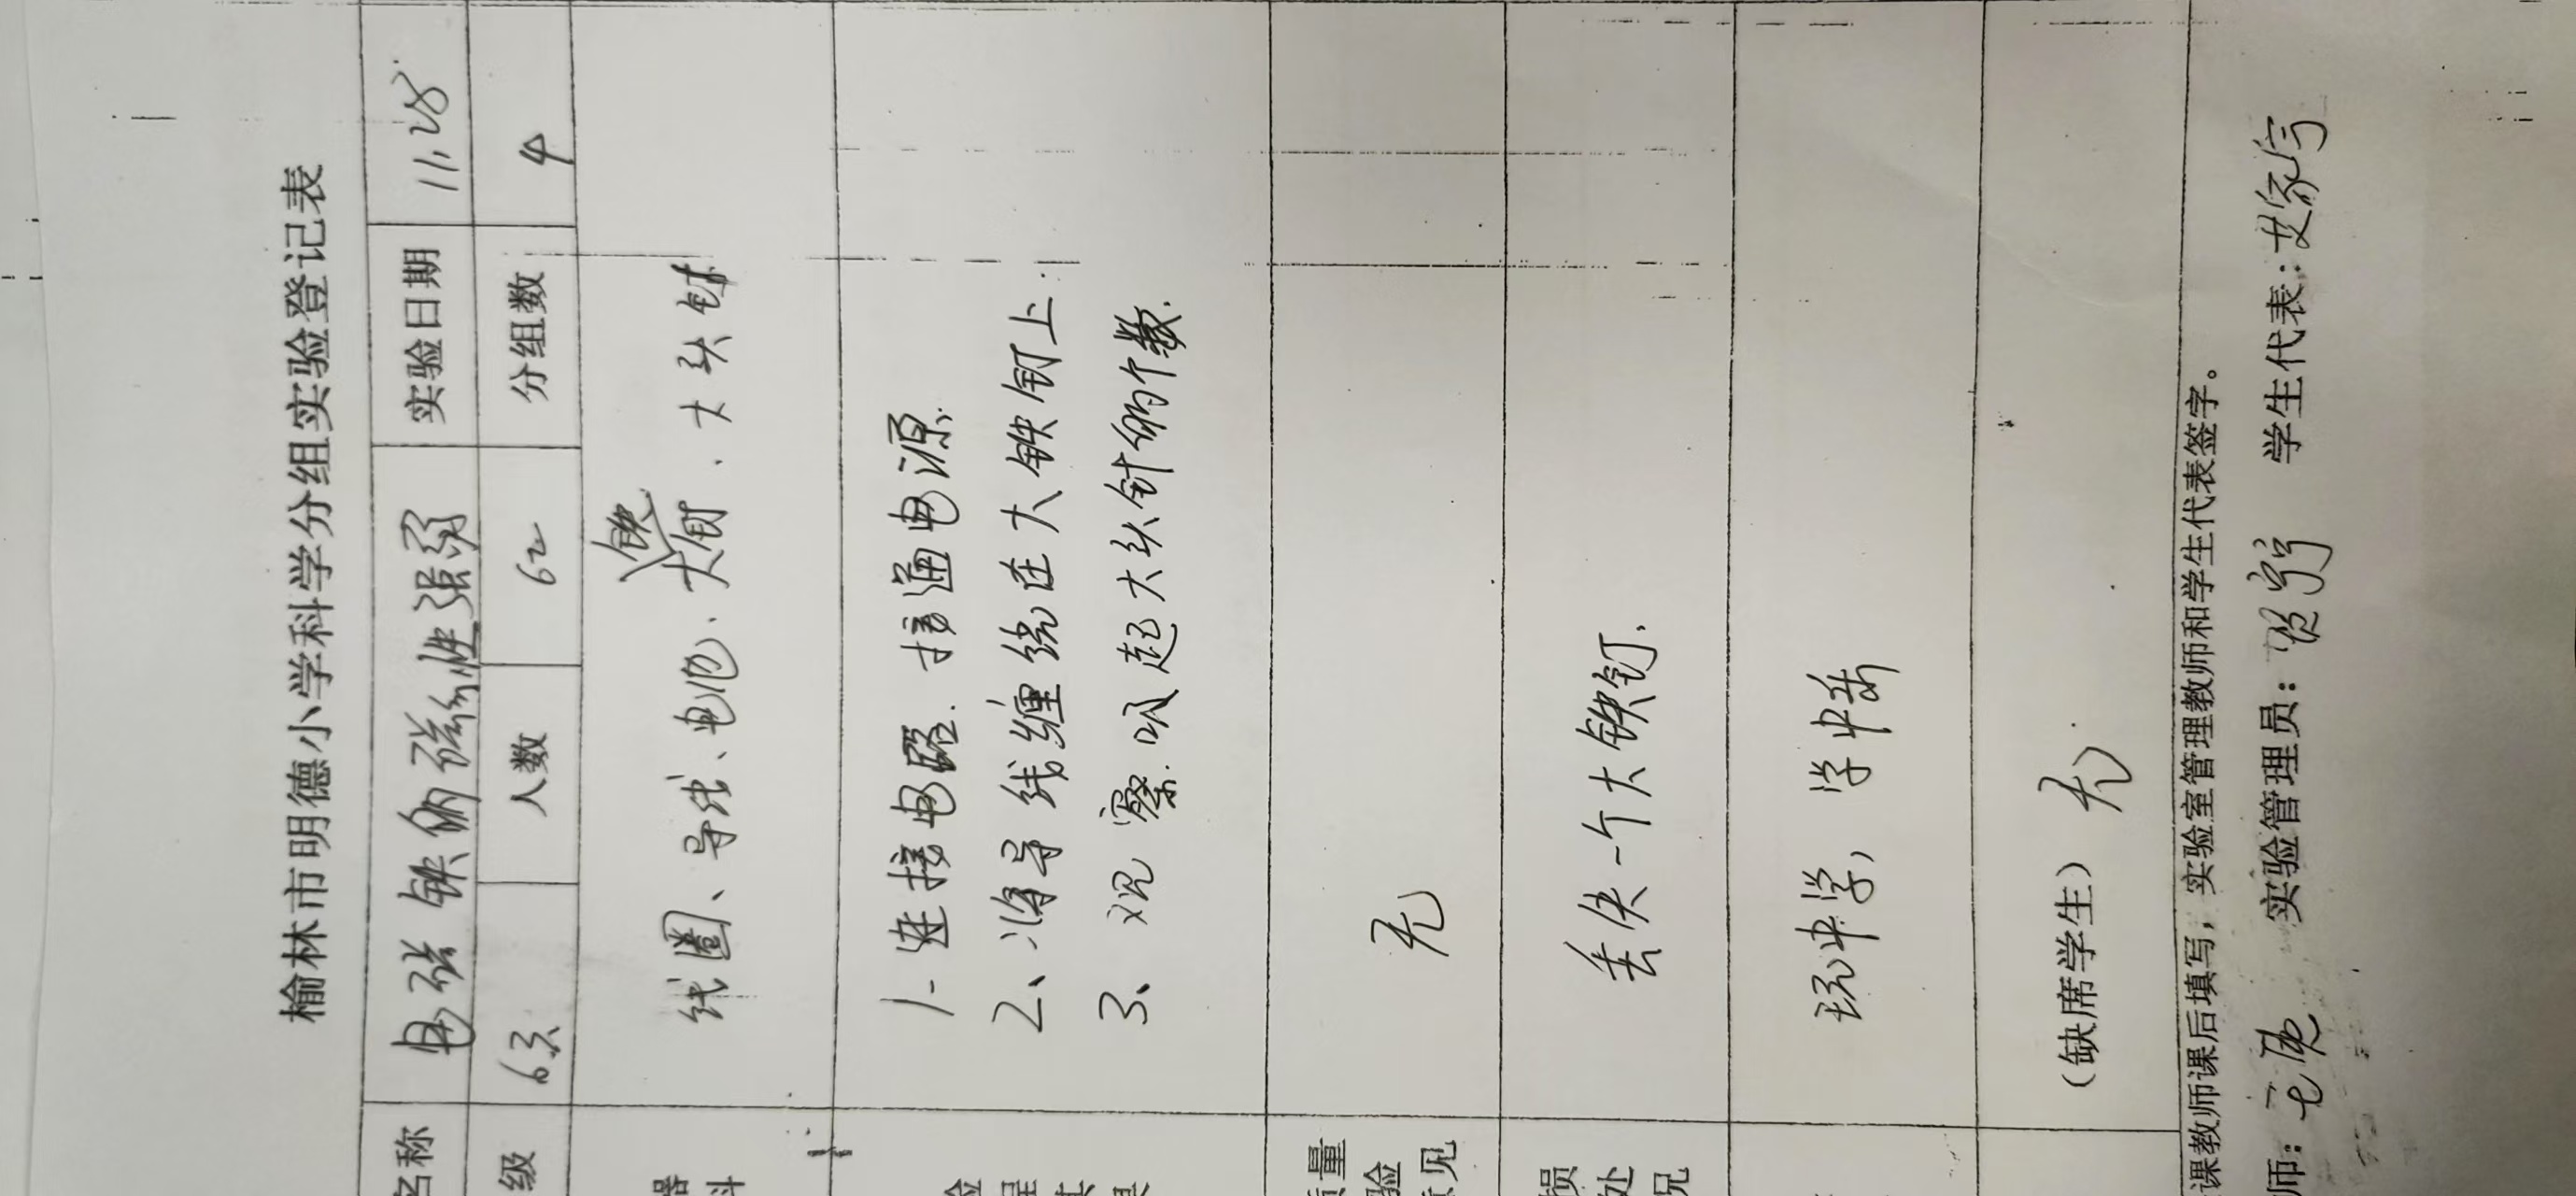 榆林市明德小学科学分组实验登记表
名称 电张铁的磁性强弱 实验日期 11.28
级 6.3 人数 62 分组数 4
器
料
线圈、导线、电池、大铁钉、大头针
1-连接电路.接通电源.
2、将导线缠绕在大铁钉上.
3、观察.吸起大头针的个数.
质量
验
意见
无
损
处
况
丢失一个大铁钉.
玩中学,学中乐
(缺席学生) 无
课教师课后填写,实验室管理教师和学生代表签字。
师: 实验管理员: 学生代表: